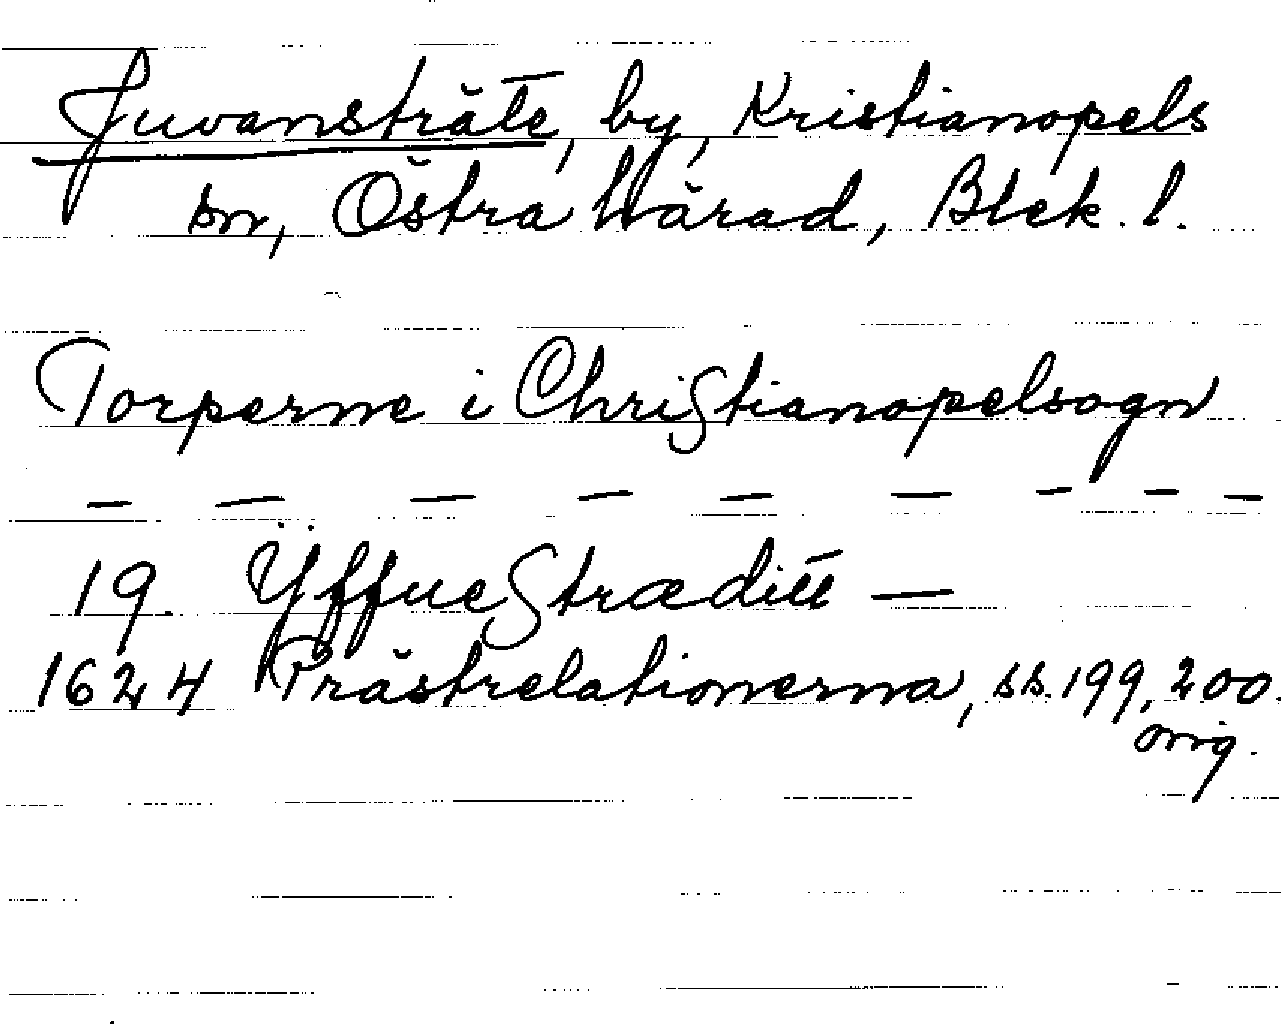 Juvansträte, by, Kristianopels
sn, Östra härad, Blek. l.
Torperne i Christianopelsogn
— — — — — — — — —
19. Ÿffue Stræditt —
1624 Prästrelationerna, ss. 199, 200.
orig.